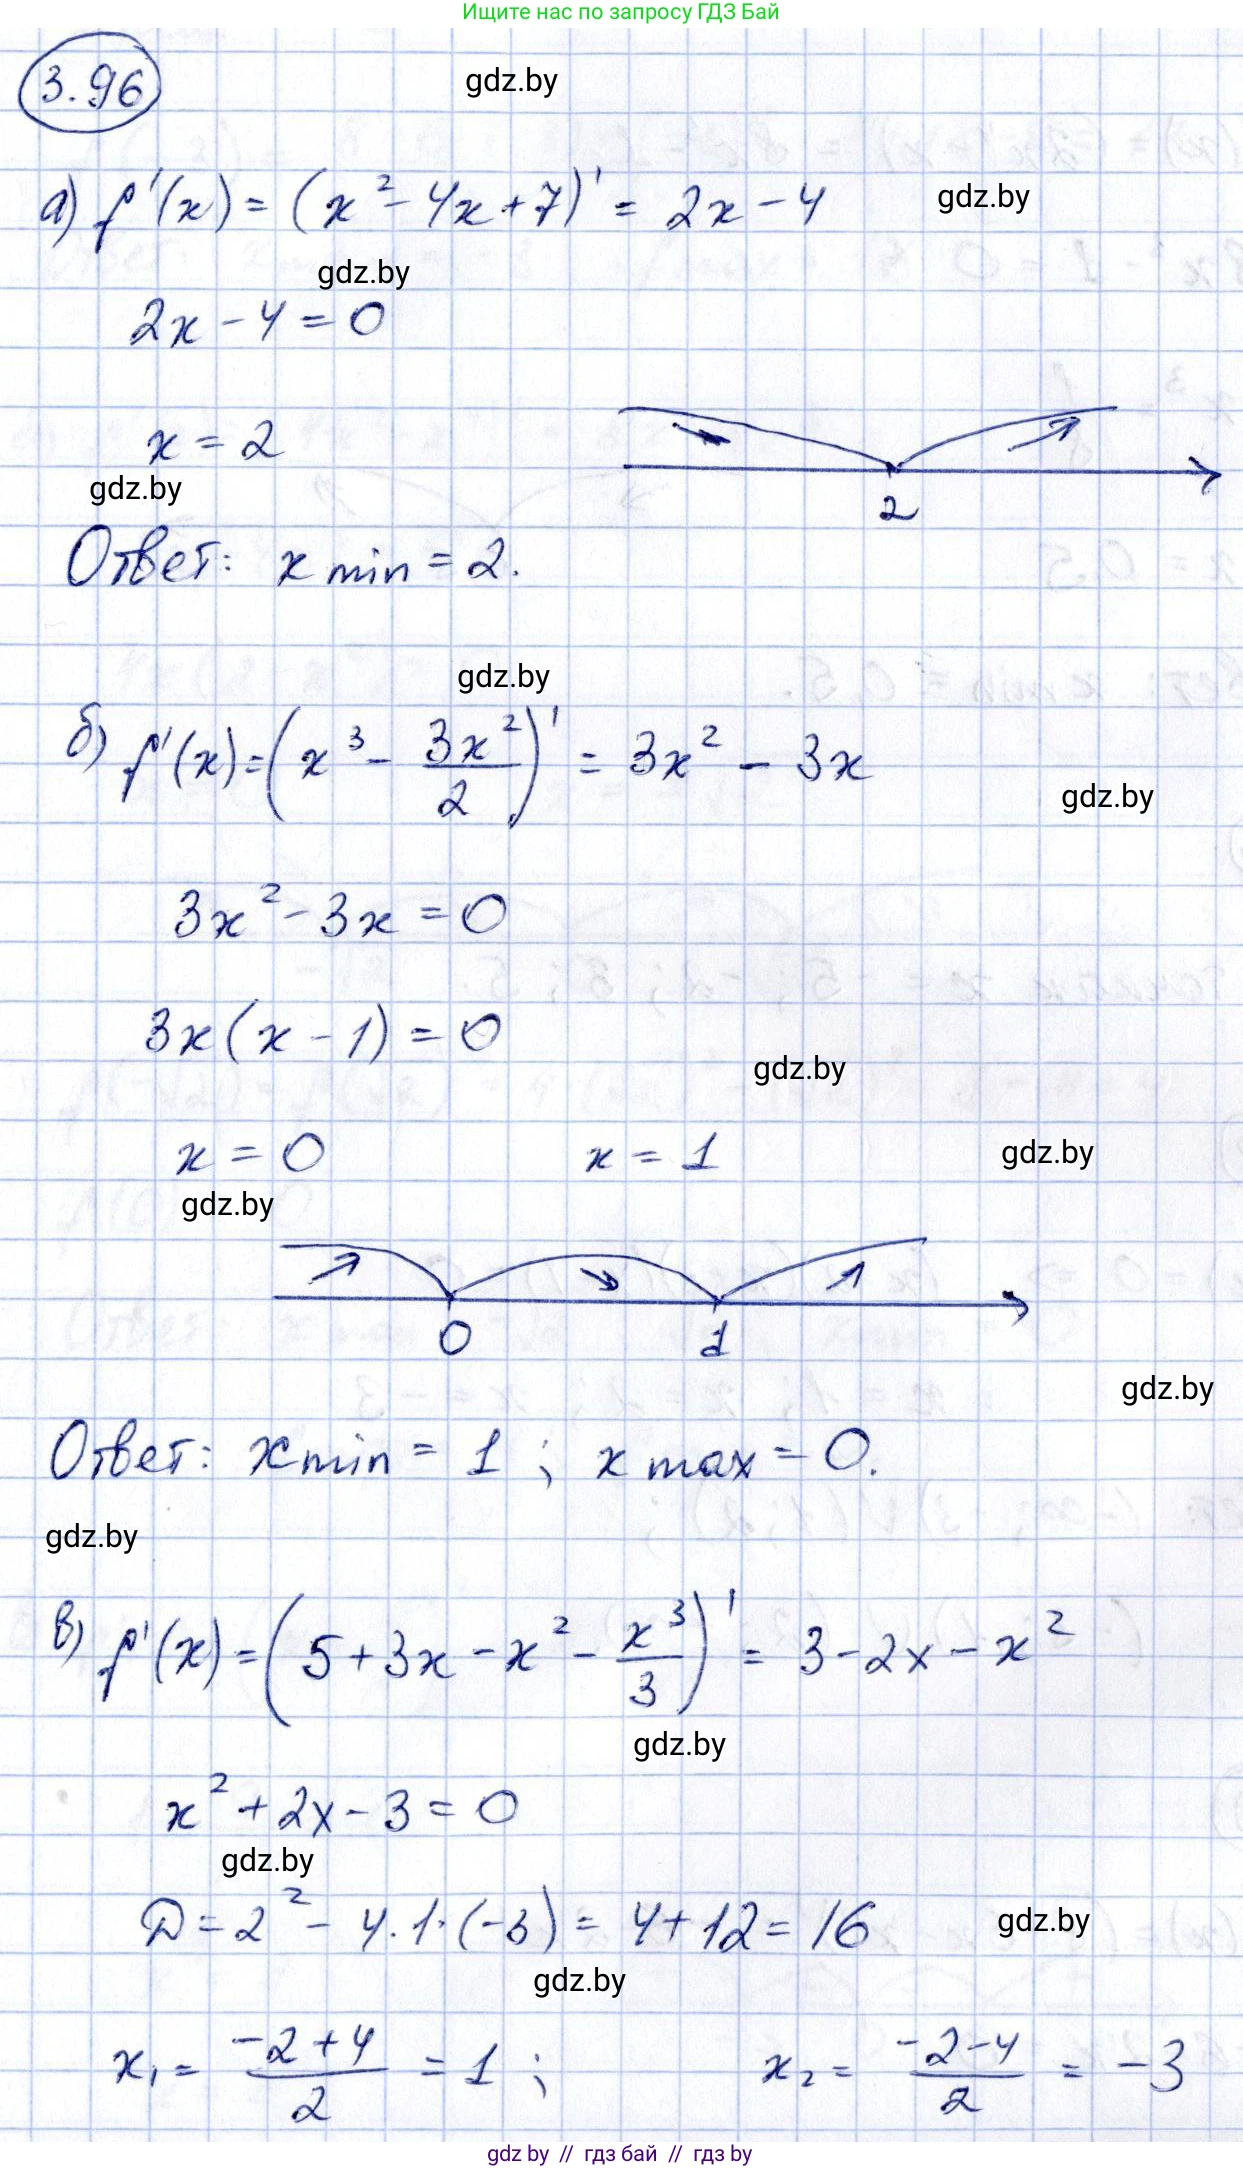 Ищите нас по запросу ГДЗ Бай
3.96
gdz.by
а) f'(x) = (x² - 4x + 7)' = 2x - 4
gdz.by
gdz.by
2x - 4 = 0
x = 2
gdz.by
2
Ответ: x min = 2.
gdz.by
б) f'(x) = (x³ - 3x²/2)' = 3x² - 3x
gdz.by
3x² - 3x = 0
3x(x - 1) = 0
gdz.by
x = 0 x = 1
gdz.by
gdz.by
0 1
gdz.by
Ответ: x min = 1 ; x max = 0.
gdz.by
в) f'(x) = (5 + 3x - x² - x³/3)' = 3 - 2x - x²
gdz.by
x² + 2x - 3 = 0
gdz.by
D = 2² - 4·1·(-3) = 4 + 12 = 16
gdz.by
gdz.by
x₁ = (-2+4)/2 = 1 ; x₂ = (-2-4)/2 = -3
gdz.by // гдз бай // гдз by